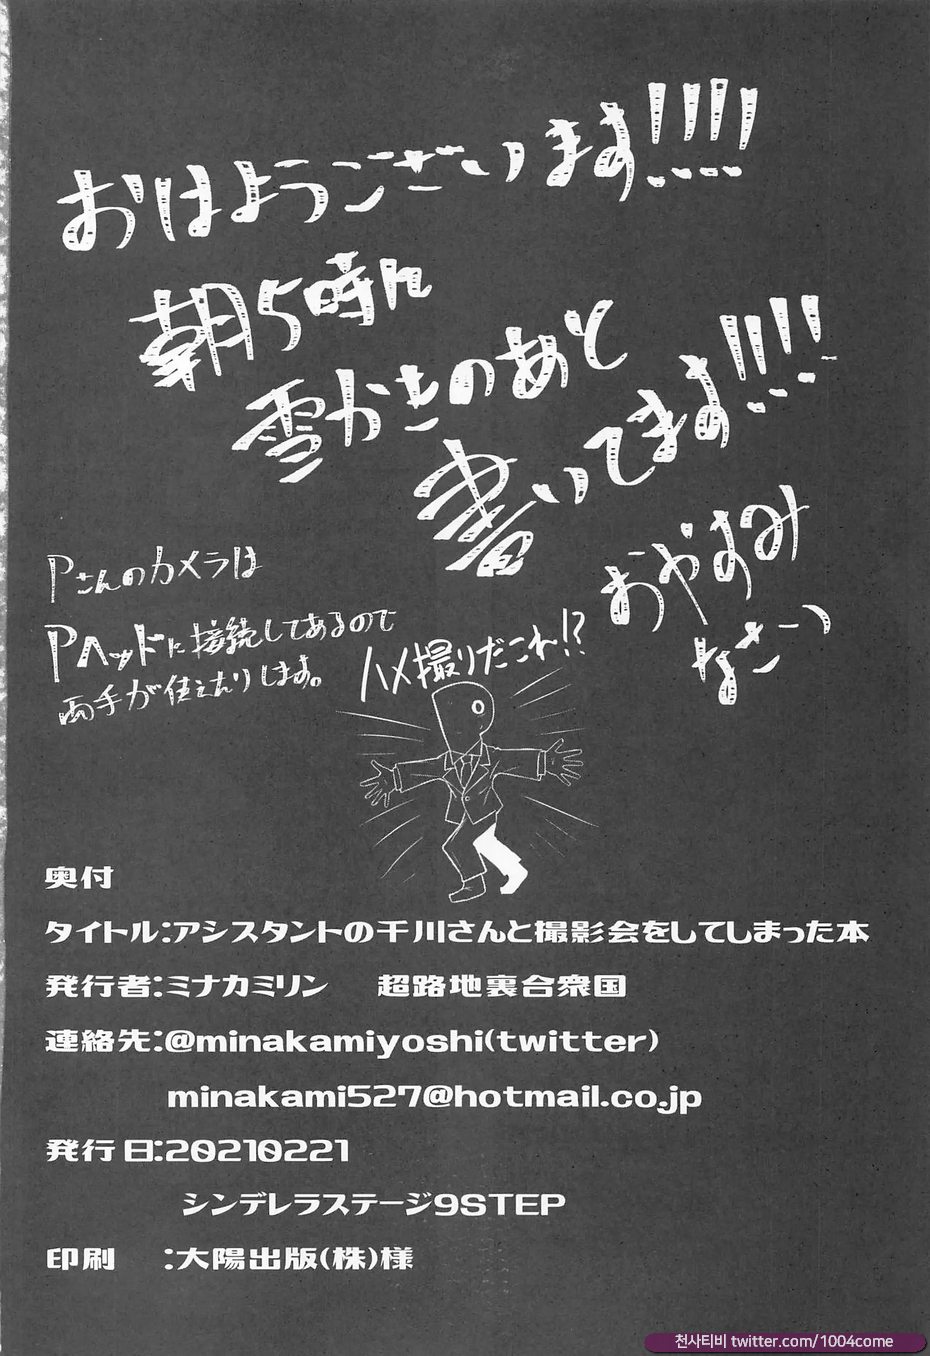 おはようございます!!!!
朝5時に
雪かきのあと
書いてます!!!!
おやすみ
なさーい
Pさんのカメラは
Pヘッドに接続してあるので
両手が使えたりします。
ハメ撮りだこれ!?
奥付
タイトル:アシスタントの千川さんと撮影会をしてしまった本
発行者:ミナカミリン 超路地裏合衆国
連絡先:@minakamiyoshi(twitter)
minakami527@hotmail.co.jp
発行日:20210221
シンデレラステージ9STEP
印刷 :大陽出版(株)様
천사티비 twitter.com/1004come